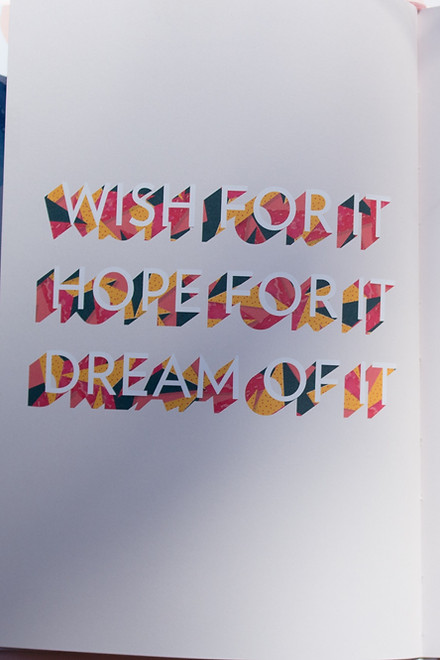 WISH FOR IT
HOPE FOR IT
DREAM OF IT